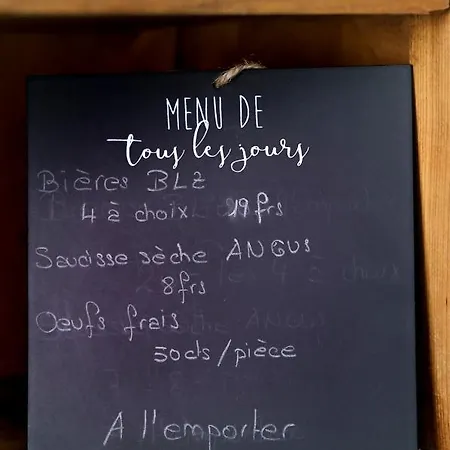 MENU DE
tous les jours
Bières BLZ
4 à choix 19frs
Saucisse sèche ANGUS
8frs
Oeufs frais
50cts/pièce
A l'emporter